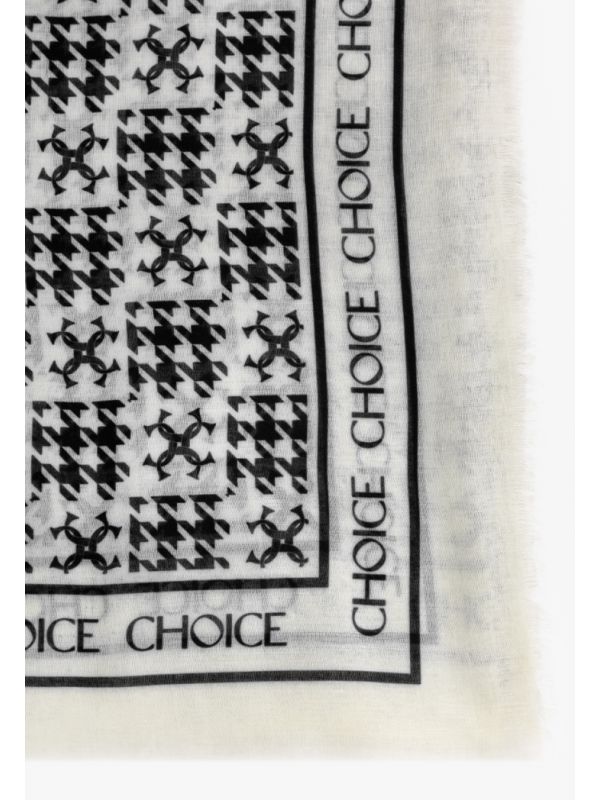 CHOICE CHOICE CHOICE CHO
OICE CHOICE